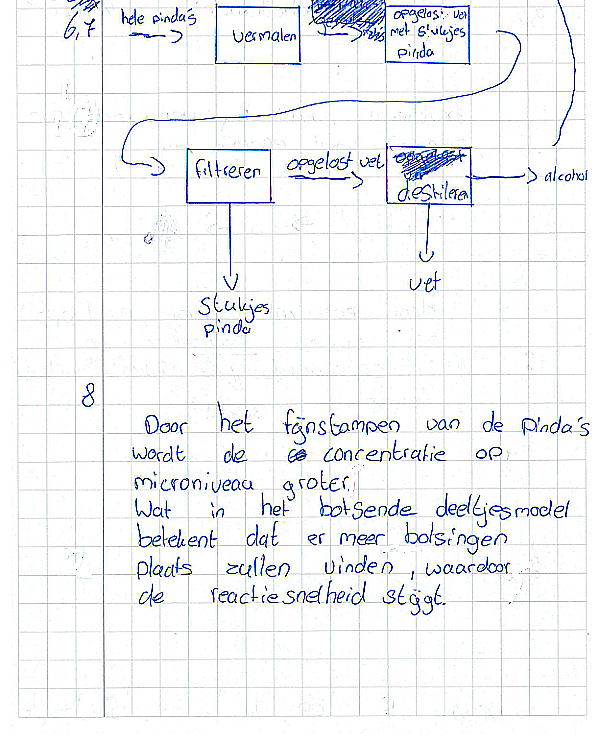 6,7
hele pinda's
vermalen
opgelost vet
met stukjes
pinda
filtreren
opgelost vet
destileren
alcohol
stukjes
pinda
vet
8
Door het fijnstampen van de pinda's
wordt de concentratie op
microniveau groter.
Wat in het botsende deeltjesmodel
betekent dat er meer botsingen
plaats zullen vinden, waardoor
de reactiesnelheid stijgt.